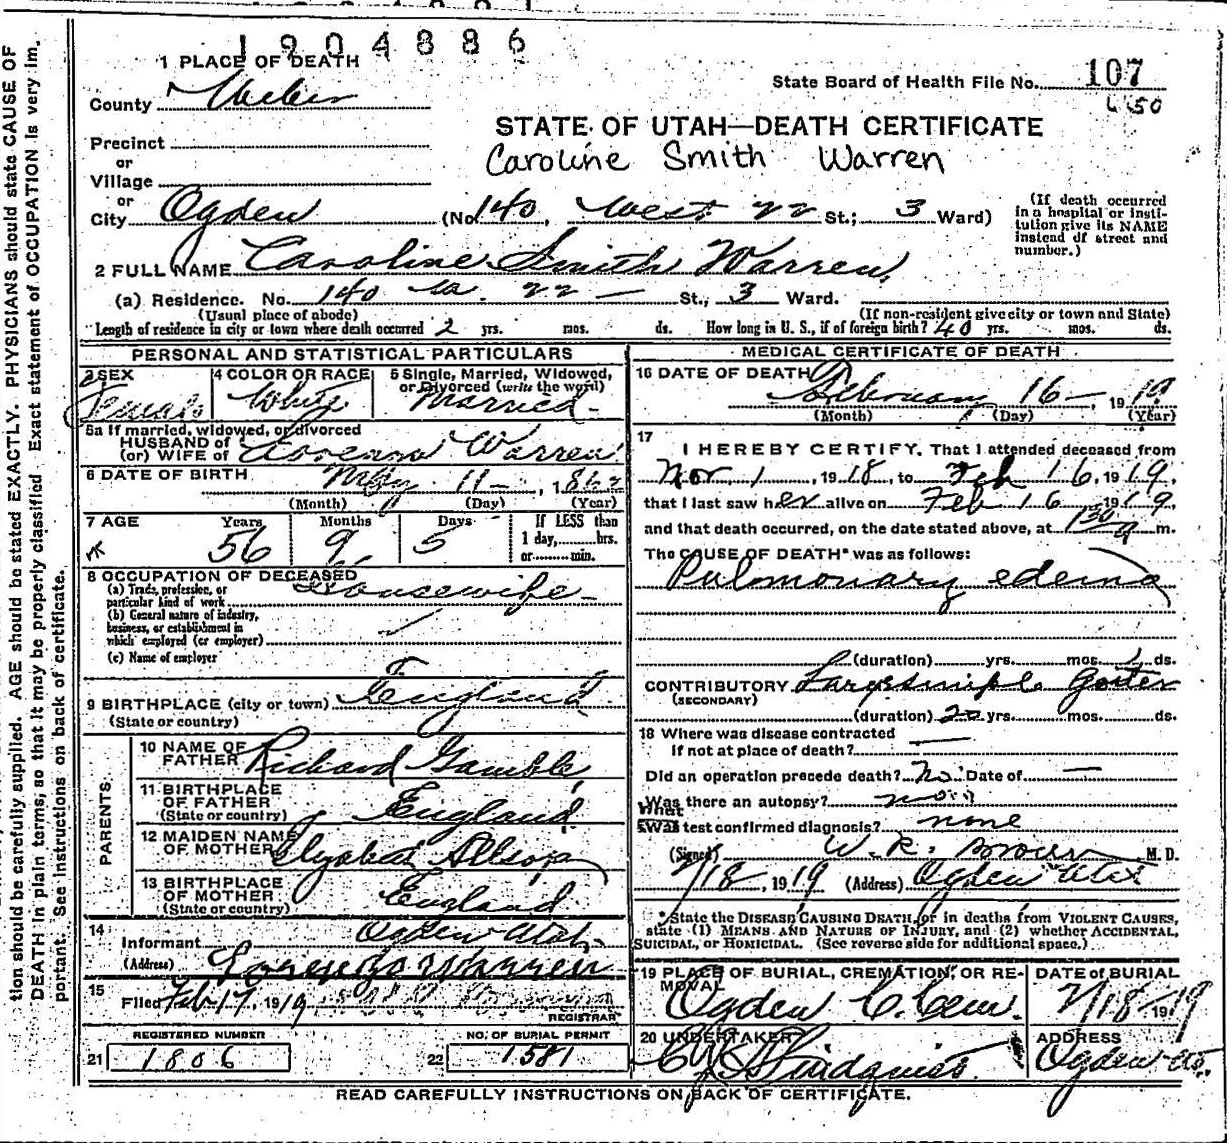 1904886
1 PLACE OF DEATH
State Board of Health File No. 107
County Weber
STATE OF UTAH—DEATH CERTIFICATE
Precinct
Caroline Smith Warren
or
Village
or
City Ogden (No. 140, West 22 St.; 3 Ward)
(If death occurred in a hospital or insti-
tution give its NAME
instead of street and
number.)
2 FULL NAME Caroline Smith Warren
(a) Residence. No. 140 W. 22 St., 3 Ward.
(Usual place of abode) (If non-resident give city or town and State)
Length of residence in city or town where death occurred 2 yrs. mos. ds. How long in U. S., if of foreign birth? 40 yrs. mos. ds.
PERSONAL AND STATISTICAL PARTICULARS
3 SEX
Female
4 COLOR OR RACE
White
5 Single, Married, Widowed,
or Divorced (write the word)
Married
5a If married, widowed, or divorced
HUSBAND of
(or) WIFE of Lorenzo Warren
6 DATE OF BIRTH May 11, 1862
(Month) (Day) (Year)
7 AGE Years Months Days
56 9 5
If LESS than
1 day, hrs.
or min.
8 OCCUPATION OF DECEASED
(a) Trade, profession, or
particular kind of work Housewife
(b) General nature of industry,
business, or establishment in
which employed (or employer)
(c) Name of employer
9 BIRTHPLACE (city or town) England
(State or country)
PARENTS
10 NAME OF
FATHER Richard Gamble
11 BIRTHPLACE
OF FATHER
(State or country) England
12 MAIDEN NAME
OF MOTHER Elizabeth Allsop
13 BIRTHPLACE
OF MOTHER
(State or country) England
14
Informant Ogden Utah
(Address) Lorenzo Warren
15
Filed Feb 17, 1919
REGISTRAR
REGISTERED NUMBER
21 1806
NO. OF BURIAL PERMIT
22 1581
MEDICAL CERTIFICATE OF DEATH
16 DATE OF DEATH
February 16, 1919
(Month) (Day) (Year)
17
I HEREBY CERTIFY, That I attended deceased from
Nov 1, 1918, to Feb 16, 1919,
that I last saw her alive on Feb 16 1919,
and that death occurred, on the date stated above, at 1 30 a m.
The CAUSE OF DEATH* was as follows:
Pulmonary edema
(duration) yrs. mos. 1 ds.
CONTRIBUTORY Large simple Goiter
(SECONDARY)
(duration) 20 yrs. mos. ds.
18 Where was disease contracted
if not at place of death?
Did an operation precede death? No. Date of
Was there an autopsy?
What
test confirmed diagnosis? none
(Signed) W. R. Brown M. D.
2/18, 1919 (Address) Ogden Utah
*State the DISEASE CAUSING DEATH, or in deaths from VIOLENT CAUSES,
state (1) MEANS AND NATURE OF INJURY, and (2) whether ACCIDENTAL,
SUICIDAL, or HOMICIDAL. (See reverse side for additional space.)
19 PLACE OF BURIAL, CREMATION, OR RE-
MOVAL
Ogden C. Cem.
DATE of BURIAL
2/18 1919
20 UNDERTAKER
Lindquist
ADDRESS
Ogden Ut.
READ CAREFULLY INSTRUCTIONS ON BACK OF CERTIFICATE.
tion should be carefully supplied. AGE should be stated EXACTLY. PHYSICIANS should state CAUSE OF
DEATH in plain terms, so that it may be properly classified. Exact statement of OCCUPATION is very im.
portant. See instructions on back of certificate.